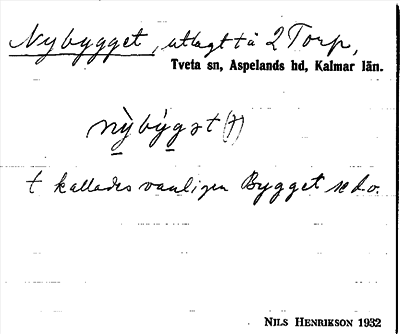 Nybygget, utlagt tå 2 Torp,
Tveta sn, Aspelands hd, Kalmar län.
nỳbýgət (7)
t kallades vanligen Bygget se d.o.
NILS HENRIKSON 1932